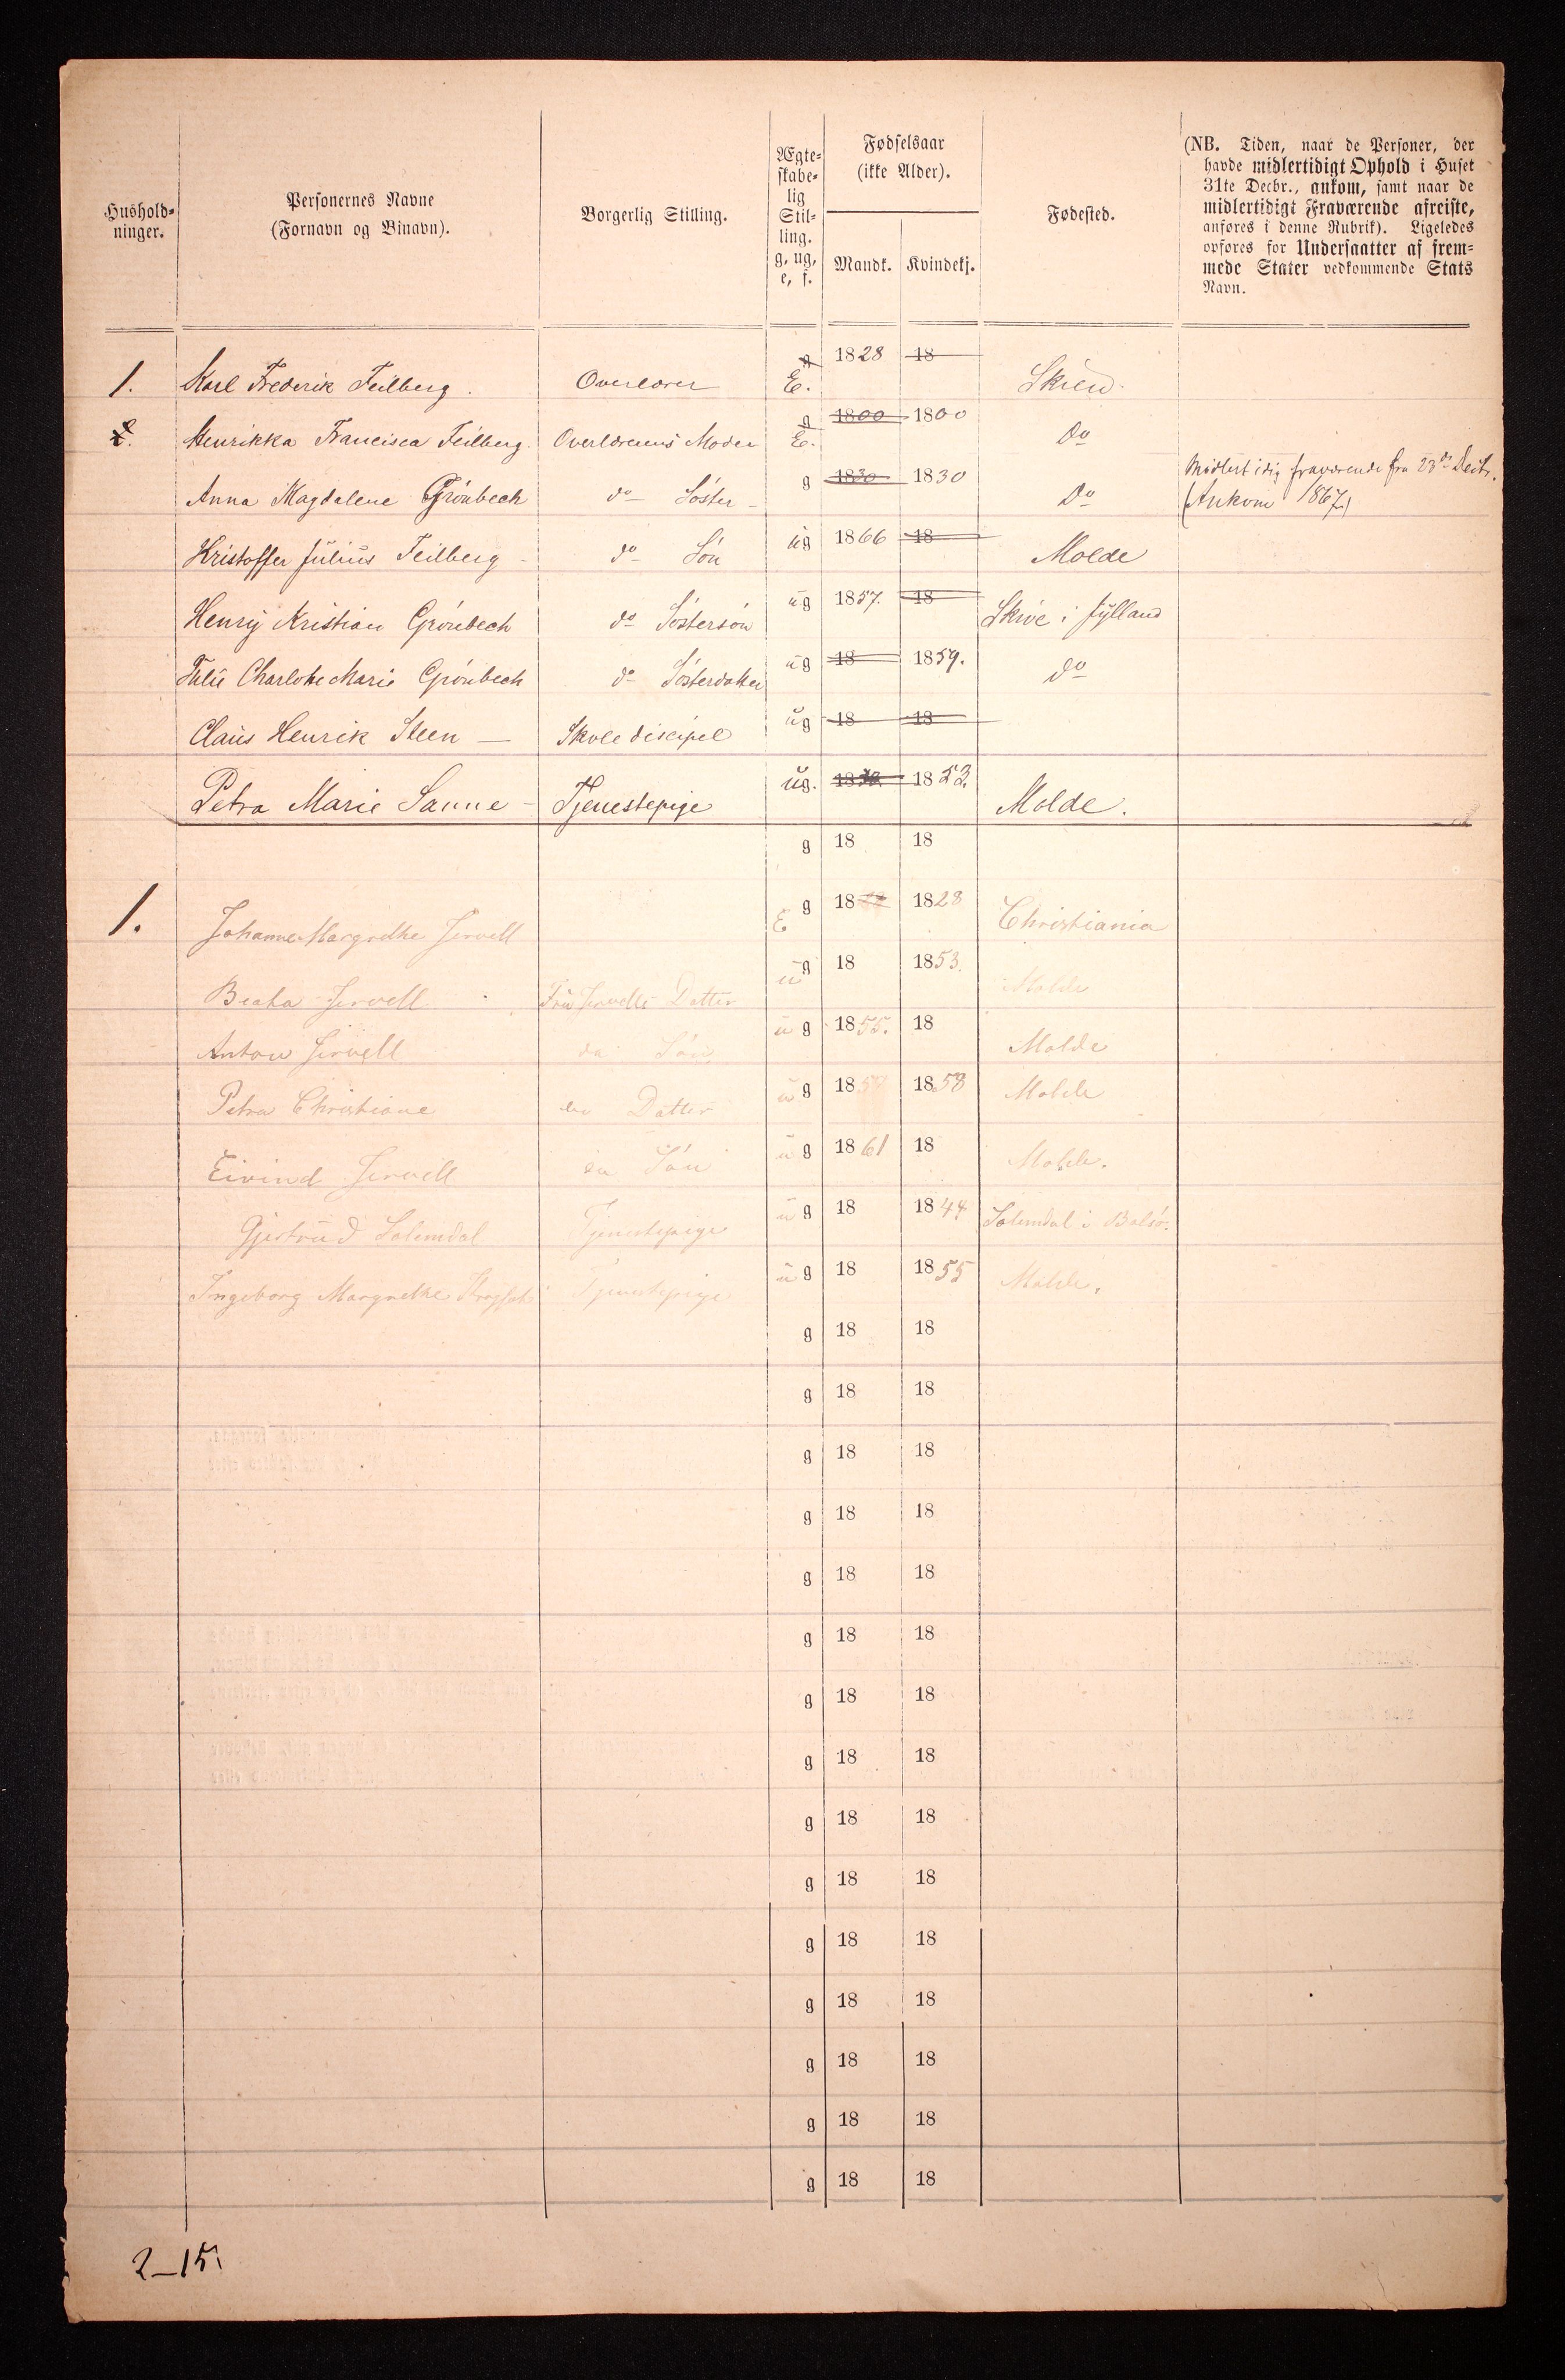 Hushold-
ninger.
Personernes Navne
(Fornavn og Binavn).
Borgerlig Stilling.
Ægte-
skabe-
lig
Stil-
ling.
g, ug,
e, f.
Fødselsaar
(ikke Alder).
Mandk.
Kvindekj.
Fødested.
(NB. Tiden, naar de Personer, der
havde midlertidigt Ophold i Huset
31te Decbr., ankom, samt naar de
midlertidigt Fraværende afreiste,
anføres i denne Rubrik). Ligeledes
opføres for Undersaatter af frem-
mede Stater vedkommende Stats
Navn.
1. Karl Frederik Feilberg. Overlærer g E. 1828 18 Skien.
2. Henrikka Francisca Feilberg. Overlærerens Moder g E. 1800 1800 do
Anna Magdalene Grönbech do Söster g 1830 1830 do Midlertidig fraværende fra 23de Decbr.
(Ankom 1867)
Kristoffer Julius Feilberg do Sön ug 1866 18 Molde
Henry Kristian Grönbech do Söstersön ug 1857. 18 Skive i Jylland
Julie Charlotte Marie Grönbech do Sösterdatter ug 18 1859. do
Claus Henrik Steen — Skolediscipel ug 18 18
Petra Marie Sanne - Tjenestepige ug. 18 1853. Molde.
g 18 18
1. Johanne Margrethe Jervell E g 18 1828 Christiania
Beata Jervell Fru Jervells Datter ug 18 1853. Molde
Anton Jervell do Sön ug 1855. 18 Molde
Petra Christiane do Datter ug 1858 1858 Molde
Eivind Jervell do Sön ug 1861 18 Molde.
Gjertrud Solemdal Tjenestepige ug 18 1844 Solemdal i Bolsö.
Ingeborg Margrethe Tjenestepige ug 18 1855 Molde.
g 18 18
g 18 18
g 18 18
g 18 18
g 18 18
g 18 18
g 18 18
g 18 18
g 18 18
g 18 18
g 18 18
g 18 18
g 18 18
g 18 18
g 18 18
2-15.